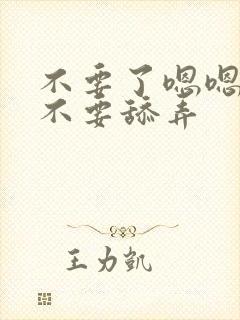 不要了嗯嗯
不要舔弄
王力凯